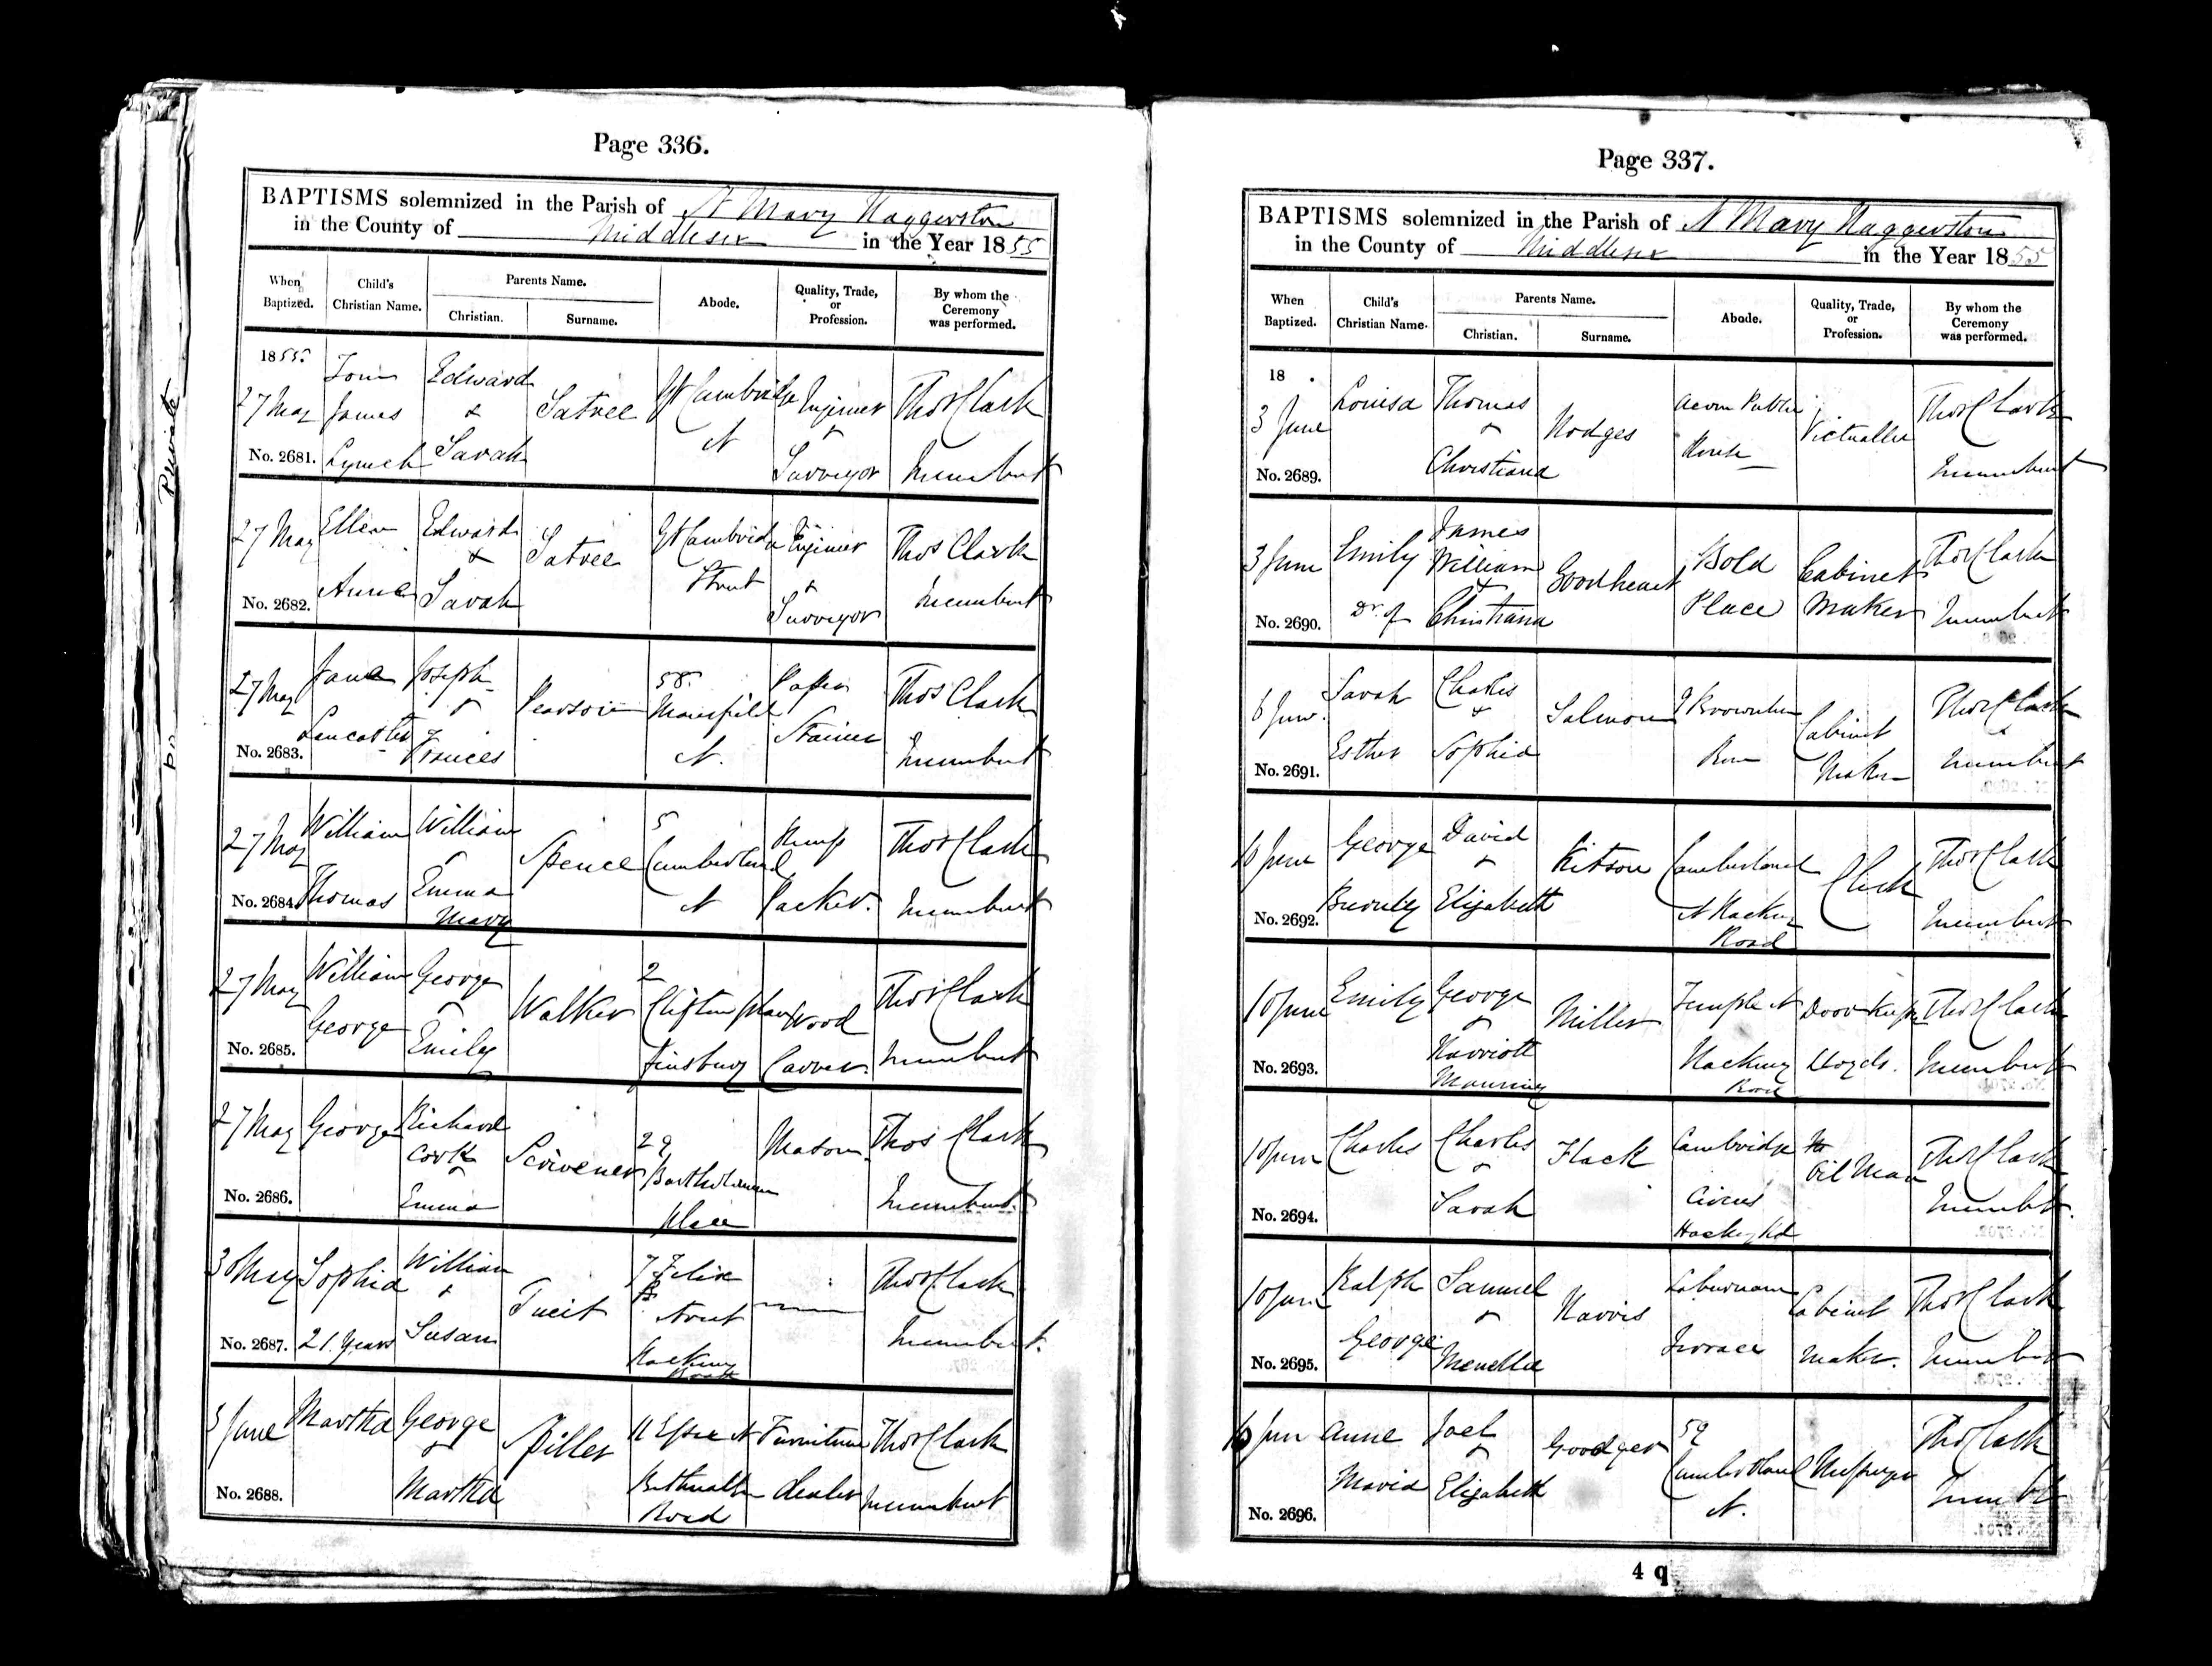 Private
Page 336.
BAPTISMS solemnized in the Parish of St Mary Haggerston
in the County of Middlesex in the Year 1855
When Baptized.
Child's Christian Name.
Parents Name.
Christian.
Surname.
Abode.
Quality, Trade, or Profession.
By whom the Ceremony was performed.
1855.
27 May
No. 2681.
James
Lynch
Edward
&
Sarah
Satree
Gt Cambridge
St
Engineer
&
Surveyor
Thos Clark
Incumbent
27 May
No. 2682.
Ellen
Anne
Edward
&
Sarah
Satree
Gt Cambridge
Street
Engineer
&
Surveyor
Thos Clark
Incumbent
27 May
No. 2683.
Jane
Lancaster
Joseph
&
Frances
Pearson
58
Mansfield
St.
Paper
Stainer
Thos Clark
Incumbent
27 May
No. 2684.
William
Thomas
William
&
Emma
Mary
Spence
5
Cumberland
St
Hemp
Packer.
Thos Clark
Incumbent
27 May
No. 2685.
William
George
George
&
Emily
Walker
2
Clifton place
Finsbury
Wood
Carver.
Thos Clark
Incumbent
27 May
No. 2686.
George
Richard
Cork
&
Emma
Scrivener
29
Bartholomew
place
Mason.
Thos Clark
Incumbent.
30 May
No. 2687.
Sophia
21 Years
William
&
Susan
7 Felix
Street
Hackney
Road
Thos Clark
Incumbent.
3 June
No. 2688.
Martha
George
&
Martha
Spiller
11 Essex St
Road
Furniture
dealer
Thos Clark
Incumbent
Page 337.
BAPTISMS solemnized in the Parish of St Mary Haggerston
in the County of Middlesex in the Year 1855
When Baptized.
Child's Christian Name.
Parents Name.
Christian.
Surname.
Abode.
Quality, Trade, or Profession.
By whom the Ceremony was performed.
18
3 June
No. 2689.
Louisa
Thomas
&
Christiana
Hodges
Acorn Public
House
Victualler
Thos Clark
Incumbent
3 June
No. 2690.
Emily
Dr. of
James
William
&
Christiana
Goodheart
Bold
Place
Cabinet
Maker
Thos Clark
Incumbent
6 June.
No. 2691.
Sarah
Esther
Charles
&
Sophia
Salmon
Row
Cabinet
Maker
Thos Clark
Incumbent
10 June
No. 2692.
George
David
&
Elizabeth
Kitson
Cumberland
St Hackney
Road
Clerk
Thos Clark
Incumbent
10 June
No. 2693.
Emily
George
&
Harriott
Miller
Temple St
Hackney
Road
Door Keeper
Lloyds.
Thos Clark
Incumbent
10 June
No. 2694.
Charles
Charles
&
Sarah
Flack
Cambridge
Circus
Hackney Rd
Oil Man
Thos Clark
Incumbt.
10 June
No. 2695.
Ralph
George
Samuel
&
Harris
Laburnam
Terrace
Cabinet
Maker.
Thos Clark
Incumbent
10 June
No. 2696.
Anne
Maria
Joel
&
Elizabeth
Goodger
59
Cumberland
St.
Thos Clark
Incumbt
4 q